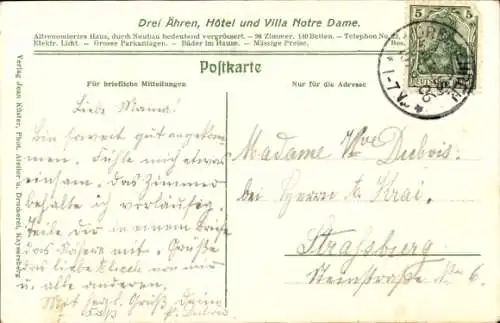 Drei Ähren, Hôtel und Villa Notre Dame.
Altrenomiertes Haus, durch Neubau bedeutend vergrössert. — 98 Zimmer. 140 Betten. — Telephon No.
Elektr. Licht. — Grosse Parkanlagen. — Bäder im Hause. — Mässige Preise. Bes.
Postkarte
Für briefliche Mitteilungen
Nur für die Adresse
Verlag Jean Küster, Phot. Atelier u. Druckerei, Kaysersberg
5
5
Liebe Mama!
Bin soweit gut angekom-
men. Fühle mich etwas
einsam. Das Zimmer
behalte ich vorläufig.
Teile dir in einem Briefe
das Nähere mit. Grüße
an liebe und
u alle anderen.
Mit herzl. Gruß Deine
Dubois
Madame Vve Dubois.
bei Herrn A. Krai.
Strassburg
Steinstraße No 6.